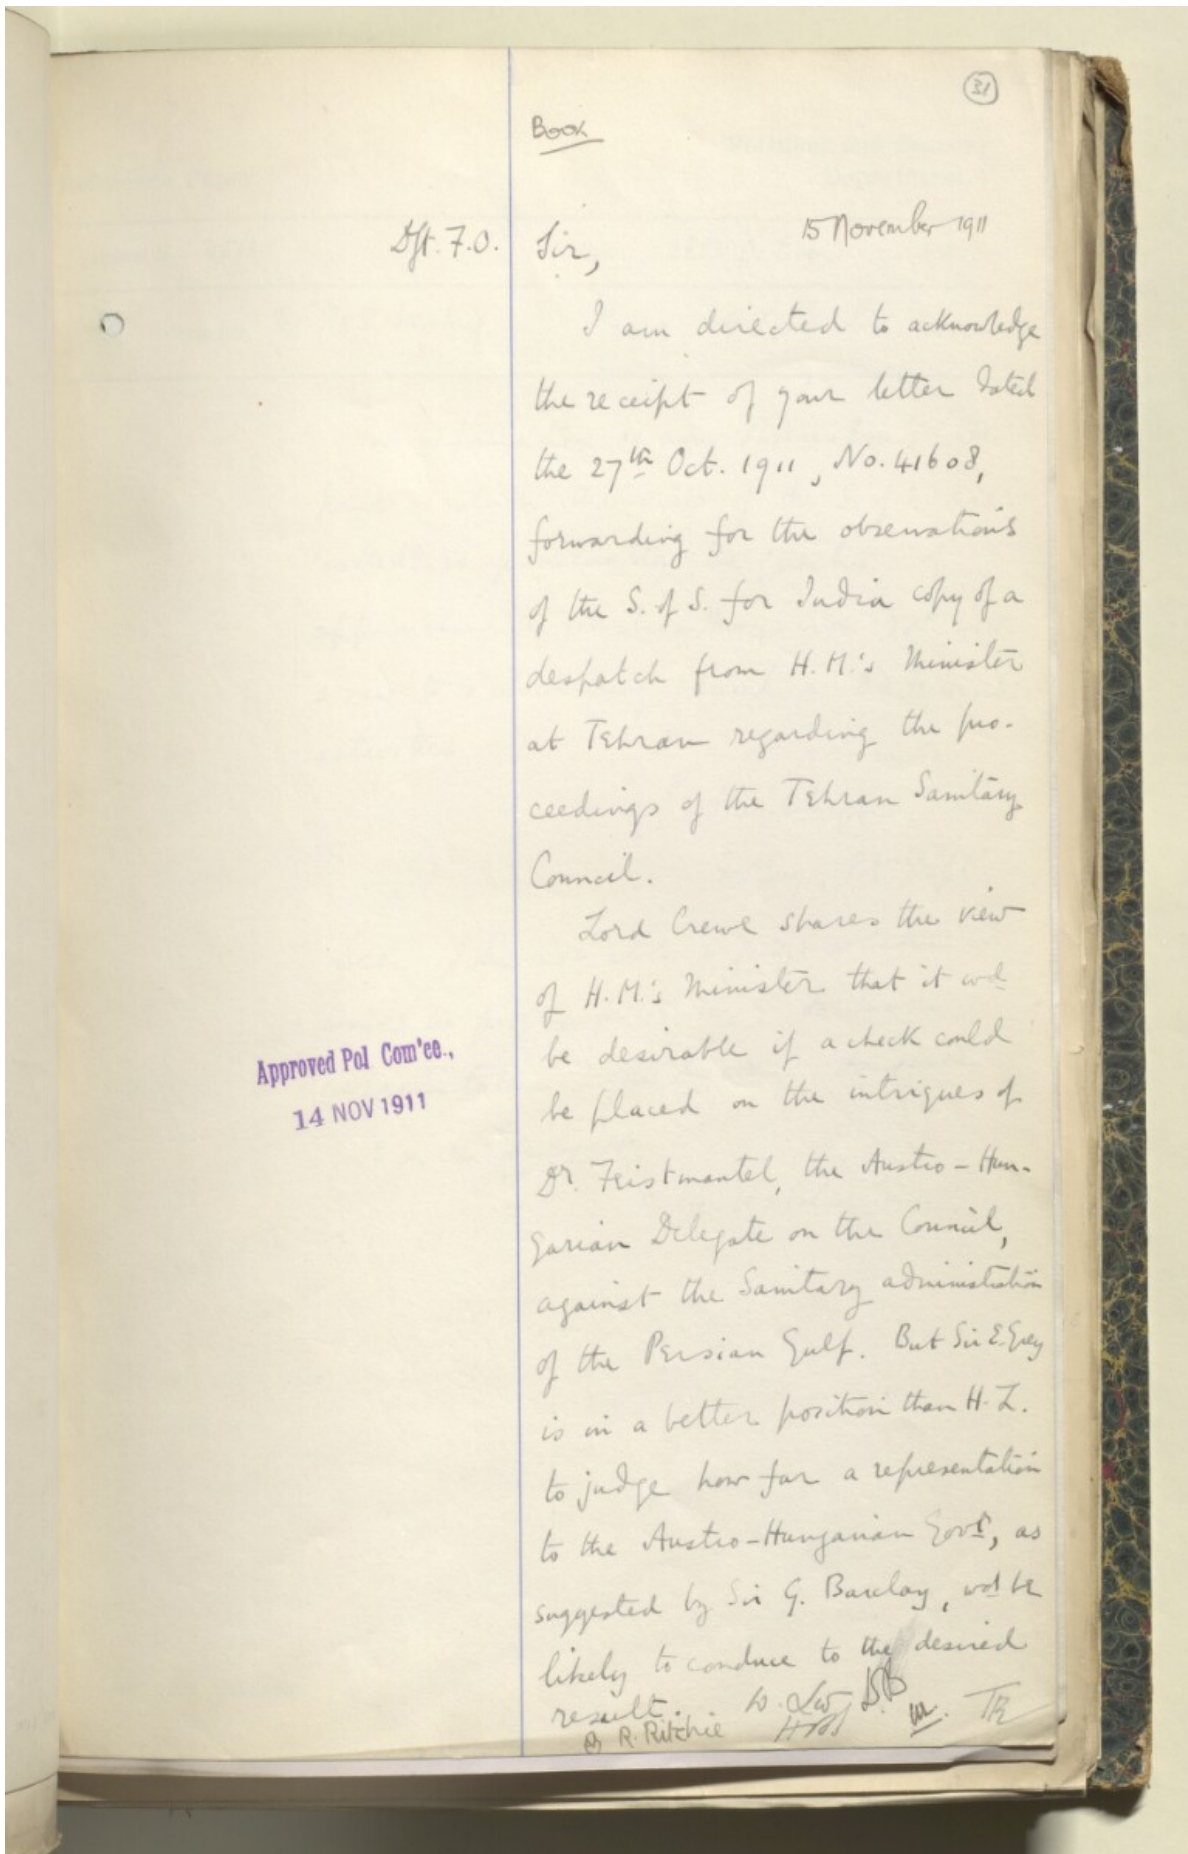 31
Book
15 November 1911
Dft. F.O.
Sir,
I am directed to acknowledge
the receipt of your letter dated
the 27th Oct. 1911, No. 41608,
forwarding for the observations
of the S. of S. for India copy of a
despatch from H.M.'s Minister
at Tehran regarding the pro-
ceedings of the Tehran Sanitary
Council.
Lord Crewe shares the view
of H.M.'s Minister that it wd
be desirable if a check could
be placed on the intrigues of
Dr. Feistmantel, the Austro-Hun-
garian Delegate on the Council,
against the Sanitary administration
of the Persian Gulf. But Sir E. Grey
is in a better position than H.L.
to judge how far a representation
to the Austro-Hungarian Govt, as
suggested by Sir G. Barclay, wd be
likely to conduce to the desired
result.
R. Ritchie
Approved Pol Com'ee.,
14 NOV 1911